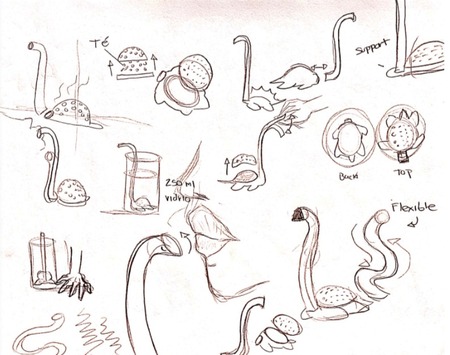 TÉ
Support
250 ml
vidrio
Back
Top
Flexible